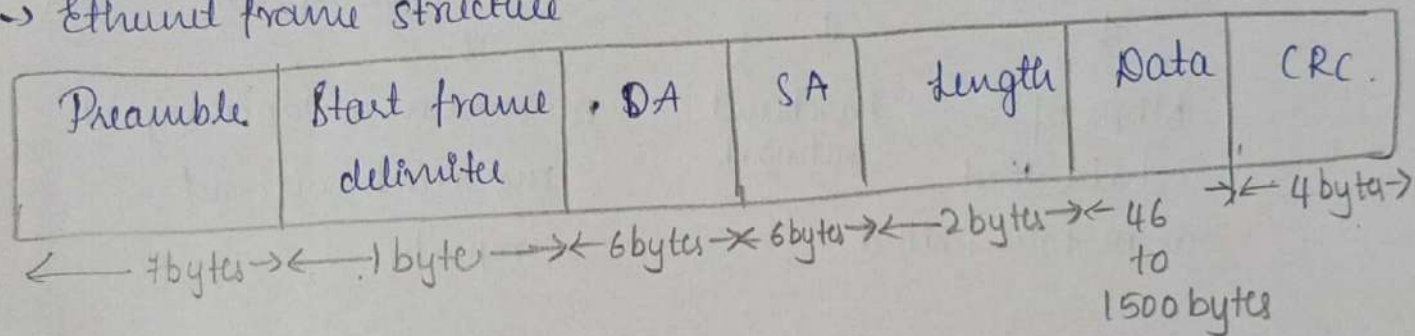 → Ethernet frame structure
Preamble. Start frame delimiter . DA SA Length Data CRC.
← 7bytes →← 1 byte →← 6bytes →← 6bytes →← 2 bytes →← 46 to 1500 bytes →← 4 byte →